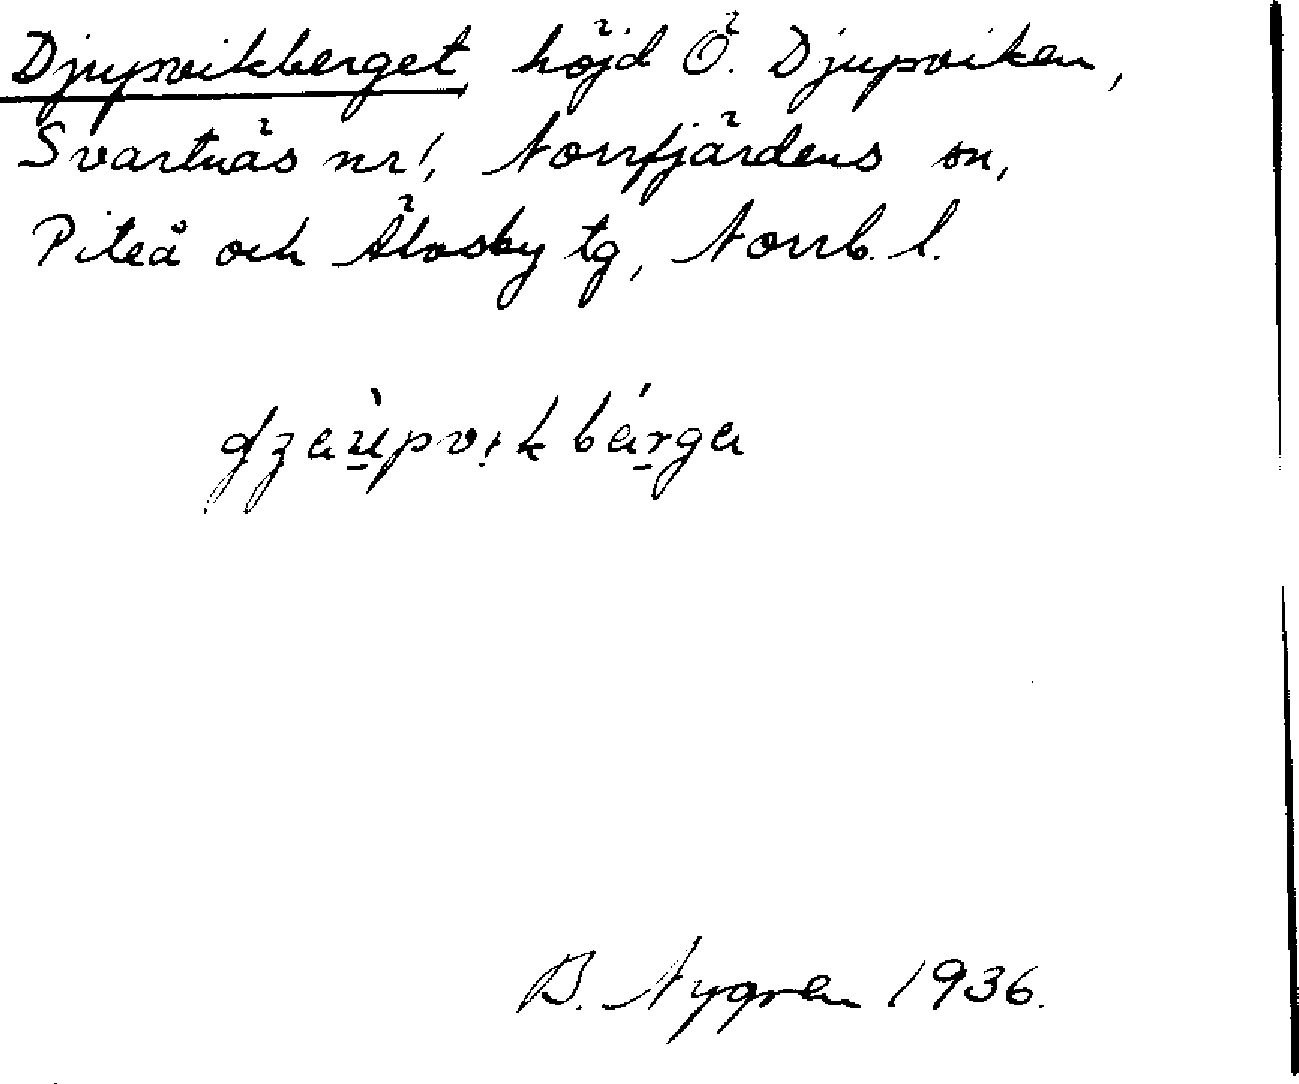 Djupvikberget höjd Ö. Djupviken,
Svartnäs nr 1, Norrfjärdens sn,
Piteå och Älvsby tg, Norrb. l.
B. Nygren 1936.